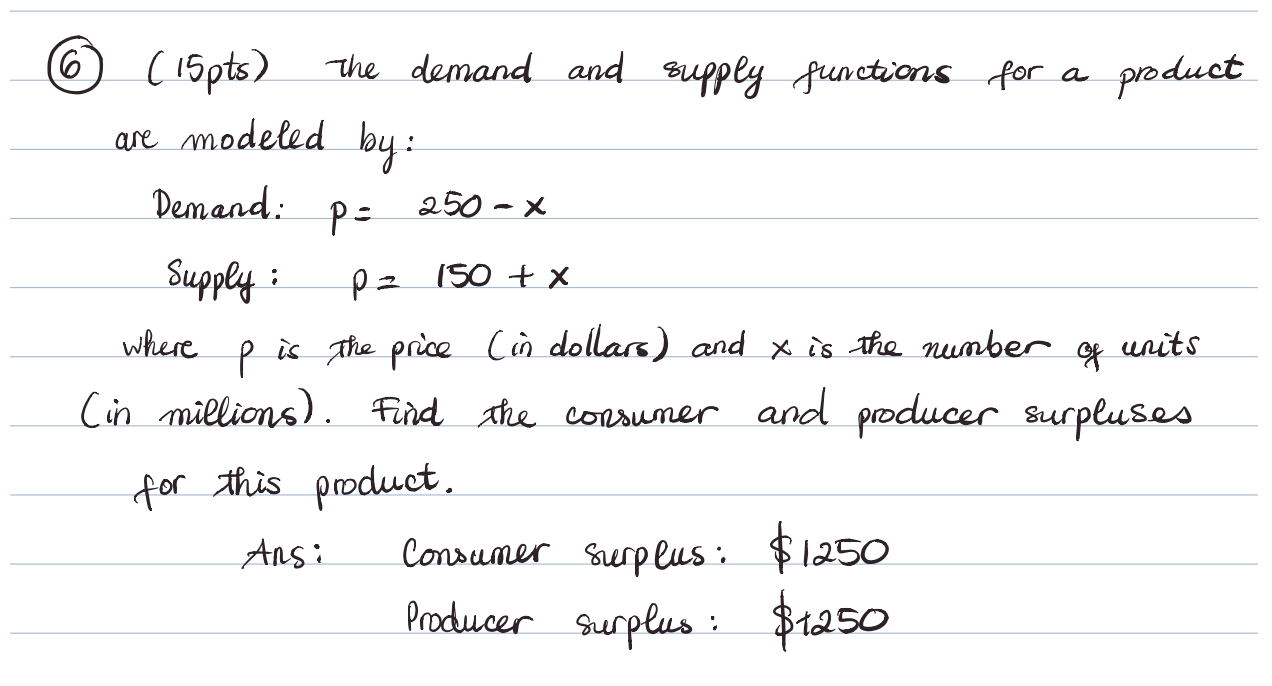 ⑥ (15pts) The demand and supply functions for a product
are modeled by:
Demand: p = 250 - x
Supply: p = 150 + x
where p is the price (in dollars) and x is the number of units
(in millions). Find the consumer and producer surpluses
for this product.
Ans: Consumer surplus: $1250
Producer surplus: $1250